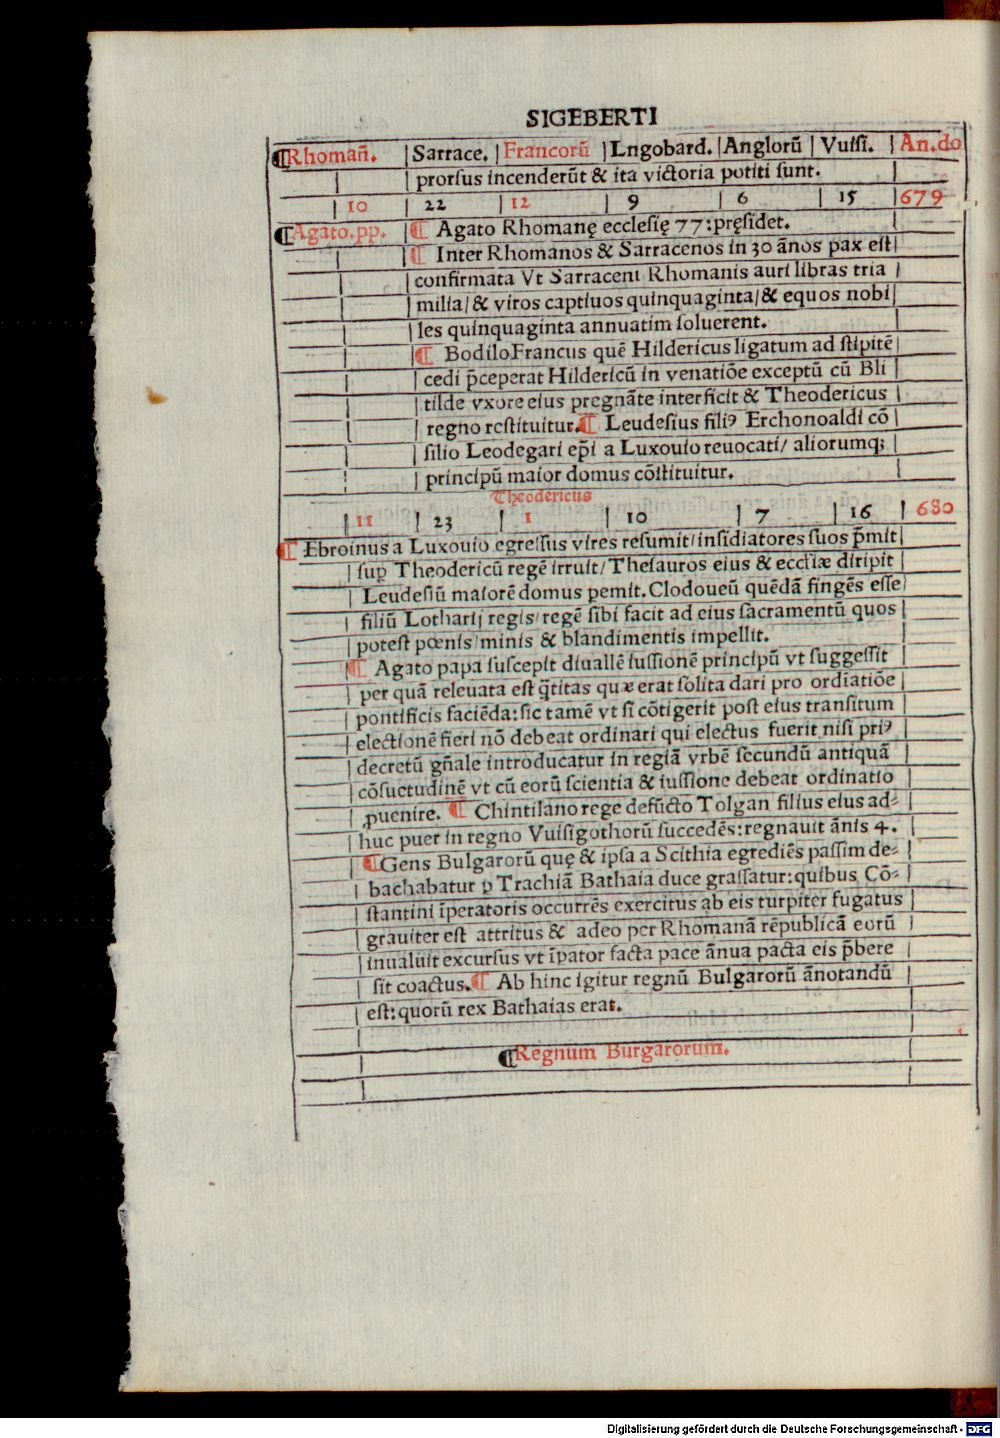 SIGEBERTI
¶Rhomañ. |Sarrace. |Francorū |Lngobard. |Anglorū | Vuisi. |An.do
prorsus incenderūt & ita victoria potiti sunt.
| 10 | 22 | 12 | 9 | 6 | 15 |679
¶Agato.pp. ¶ Agato Rhomanę ecclesię 77:pręsidet.
¶ Inter Rhomanos & Sarracenos in 30 ānos pax est
confirmata Vt Sarraceni Rhomanis auri libras tria
milia/& viros captiuos quinquaginta/& equos nobi
les quinquaginta annuatim soluerent.
¶ Bodilo Francus quē Hildericus ligatum ad stipitē
cedi p̄ceperat Hildericū in venatiōe exceptū cū Bli
tilde vxore eius pregnāte interficit & Theodericus
regno restituitur.¶ Leudesius filiꝰ Erchonoaldi cō
silio Leodegari ep̄i a Luxouio reuocati/ aliorumq;
principū maior domus cōstituitur.
Theodericus
| 11 | 23 | 1 | 10 | 7 | 16 | 680
¶ Ebroinus a Luxouio egressus vires resumit/insidiatores suos p̄mit
sup Theodericū regē irruit/Thesauros eius & eccl'iæ diripit
Leudesiū maiorē domus pemit.Clodoueū quēdā fingēs esse
filiū Lotharij regis/regē sibi facit ad eius sacramentū quos
potest pœnis/minis & blandimentis impellit.
¶ Agato papa suscepit diuallē iussionē principū vt suggessit
per quā releuata est q̄titas quæ erat solita dari pro ordiatiōe
pontificis faciēda:sic tamē vt si cōtigerit post eius transitum
electionē fieri nō debeat ordinari qui electus fuerit nisi priꝰ
decretū gñale introducatur in regiā vrbē secundū antiquā
cōsuetudinē vt cū eorū scientia & iussione debeat ordinatio
ꝓuenire. ¶ Chintilano rege defūcto Tolgan filius eius ad-
huc puer in regno Vuisigothorū succedēs:regnauit ānis 4.
¶Gens Bulgarorū quę & ipsa a Scithia egrediēs passim de-
bachabatur ꝑ Trachiā Bathaia duce grassatur:quibus Cō-
stantini īperatoris occurrēs exercitus ab eis turpiter fugatus
grauiter est attritus & adeo per Rhomanā rēpublicā eorū
inualuit excursus vt īpator facta pace ānua pacta eis p̄bere
sit coactus.¶ Ab hinc igitur regnū Bulgarorū ānotandū
est:quorū rex Bathaias erat.
¶Regnum Burgarorum.
Digitalisierung gefördert durch die Deutsche Forschungsgemeinschaft - DFG